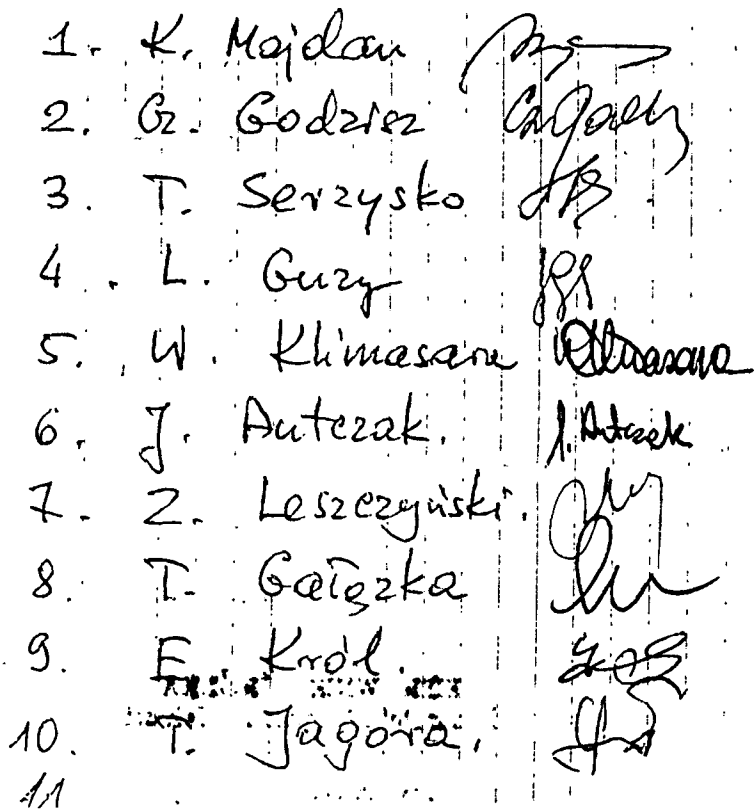 1. K. Majdan
2. G. Godzisz
3. T. Serzysko
4. L. Guzy
5. W. Klimasara Klimasara
6. J. Antczak. J. Antczak
7. Z. Leszczyński.
8. T. Gałązka
9. E. Król.
10. T. Jagóra.
11